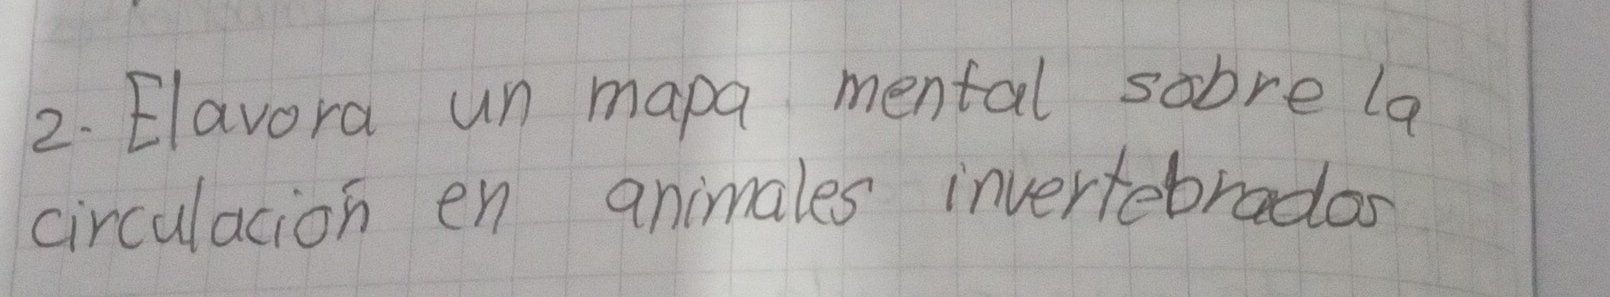 2. Elavora un mapa mental sobre la
circulación en animales invertebrados